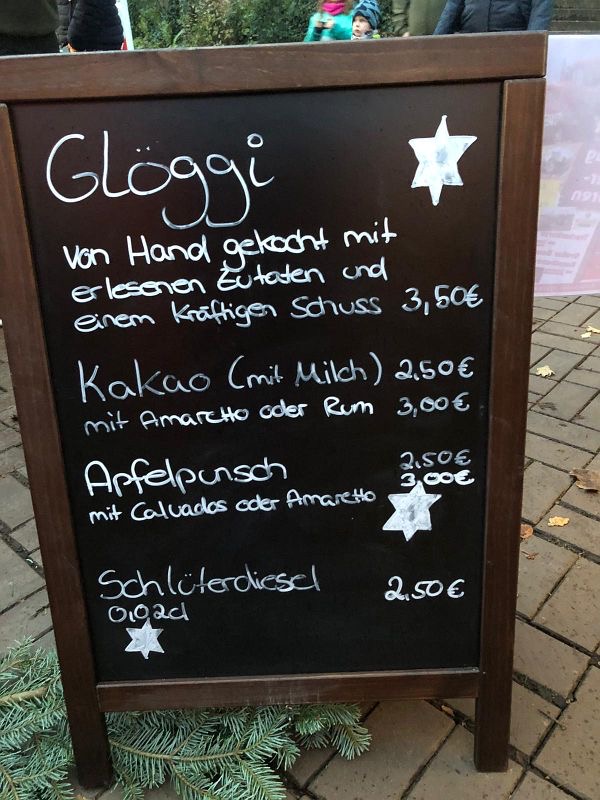 Glöggi
von Hand gekocht mit
erlesenen Zutaten und
einem kräftigen Schuss 3,50€
Kakao (mit Milch) 2,50€
mit Amaretto oder Rum 3,00€
Apfelpunsch 2,50€
3,00€
mit Calvados oder Amaretto
Schlüterdiesel 2,50€
0,02cl